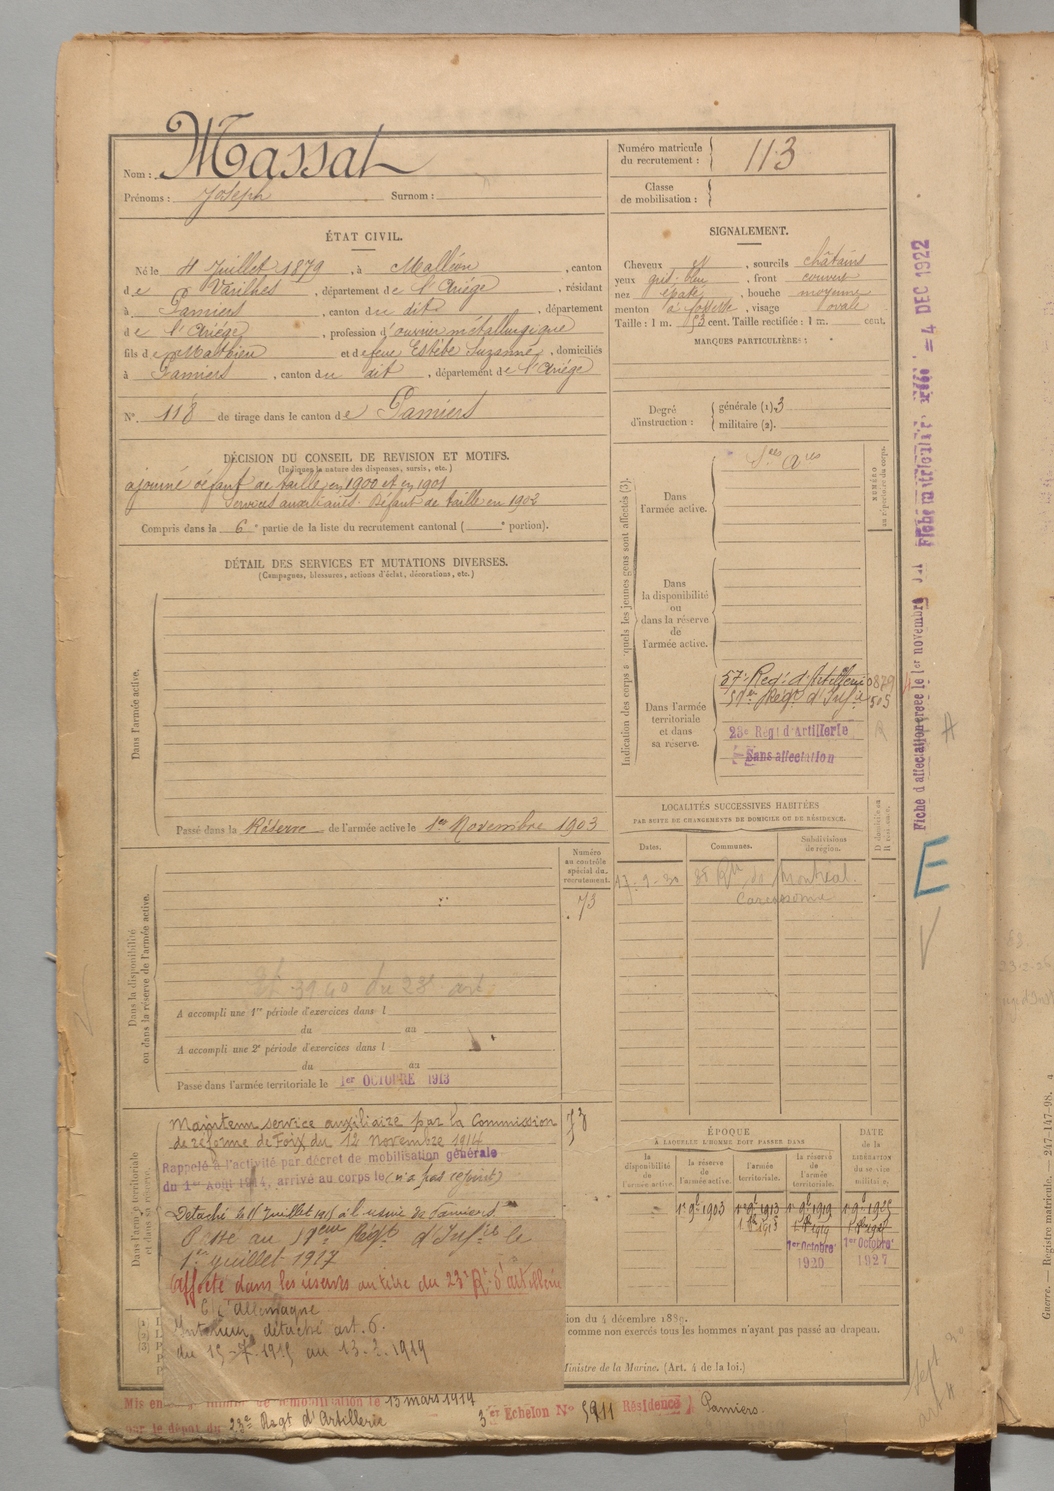 Nom : Massat
Prénoms : Joseph Surnom :
Numéro matricule du recrutement : 113
Classe de mobilisation :
ÉTAT CIVIL.
Né le 4 Juillet 1879, à Malléon, canton
de Varilhes, département de l'Ariège, résidant
à Pamiers, canton du dit, département
de l'Ariège, profession d'ouvrier métallurgique
fils de Mathieu et de feue Estèbe Suzanne, domiciliés
à Pamiers, canton du dit, département de l'Ariège
N° 118 de tirage dans le canton de Pamiers
SIGNALEMENT.
Cheveux et, sourcils châtains
yeux gris-bleu, front couvert
nez épaté, bouche moyenne
menton à fossette, visage ovale
Taille : 1 m. 53 cent. Taille rectifiée : 1 m. cent.
MARQUES PARTICULIÈRES :
Degré d'instruction : générale (1). 3
militaire (2).
DÉCISION DU CONSEIL DE REVISION ET MOTIFS.
(Indiquer la nature des dispenses, sursis, etc.)
ajourné défaut de taille en 1900 et en 1901
Services auxiliaires. Défaut de taille en 1902
Compris dans la 6e partie de la liste du recrutement cantonal ( e portion).
DÉTAIL DES SERVICES ET MUTATIONS DIVERSES.
(Campagnes, blessures, actions d'éclat, décorations, etc.)
Dans l'armée active.
Passé dans la Réserve de l'armée active le 1er Novembre 1903
Indication des corps auxquels les jeunes gens sont affectés (3).
NUMÉRO au répertoire du corps.
Dans l'armée active.
Ses Ares
Dans la disponibilité ou dans la réserve de l'armée active.
Dans l'armée territoriale et dans sa réserve.
57e Regt d'Artillerie
Regt d'Infie 505
23e Régt d'Artillerie
Sans affectation
LOCALITÉS SUCCESSIVES HABITÉES
PAR SUITE DE CHANGEMENTS DE DOMICILE OU DE RÉSIDENCE.
Dates. Communes. Subdivisions de région.
17-9-30 Rte de Montréal
Carcassonne
Dans la disponibilité ou dans la réserve de l'armée active.
Numéro au contrôle spécial du recrutement.
73
3940 du 23e art.
A accompli une 1re période d'exercices dans l
du au
A accompli une 2e période d'exercices dans l
du au
Passé dans l'armée territoriale le 1er OCTOBRE 1913
Dans l'armée territoriale et dans sa réserve.
Maintenu service auxiliaire par la Commission
de réforme de Foix du 12 Novembre 1914
Rappelé à l'activité par décret de mobilisation générale
du 1er Août 1914, arrivé au corps le (n'a pas rejoint)
Détaché le 15 Juillet 1915 à l'usine de Pamiers
Passé au Régt d'Infie le
1er juillet 1917
Affecté dans les réserves au titre du 23e Rt d'artillerie
C/ l'allemagne
Intérieur détaché art. 6.
du 15-7-1915 au 13-3-1919
ÉPOQUE
A LAQUELLE L'HOMME DOIT PASSER DANS
la disponibilité de l'armée active.
la réserve de l'armée active.
l'armée territoriale.
la réserve de l'armée territoriale.
DATE de la LIBÉRATION du service militaire.
1er 9bre 1903 1er 9bre 1913 1er 9bre 1919
1er Octobre 1920
1er Octobre 1927
comme non exercés tous les hommes n'ayant pas passé au drapeau.
Ministre de la Marine. (Art. 4 de la loi.)
le 13 mars 1919
par le dépôt du 23e Regt d'Artillerie
3er Echelon N° 5911 Résidence Pamiers
Fiche d'affectation créée le 1er novembre
Fiche matriculaire créée = 4 DEC 1922
E
Guerre. — Registre matricule. — 247-147-98.